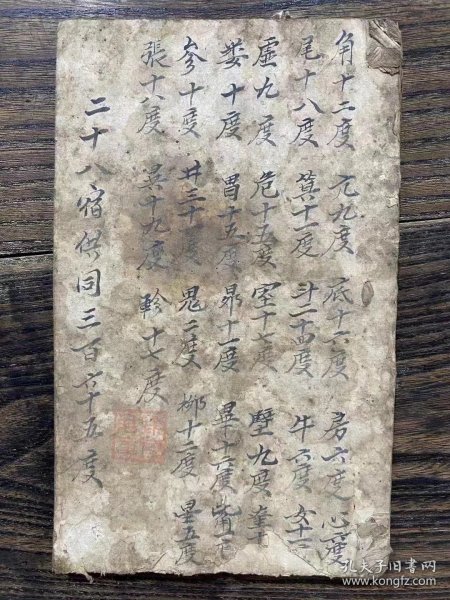 角十二度 亢九度 底十六度 房六度 心度
尾十八度 箕十一度 斗二十四度 牛六度 女十一
虚九度 危十五度 室十七度 壁九度 奎十
娄十度 胃十五度 昴十一度 畢十六度 觜一
参十度 井三十度 鬼二度 柳十二度 星五度
張十八度 異十九度 軫十七度
二十八宿供同三百六十五度
孔夫子旧书网
book.kongfz.com